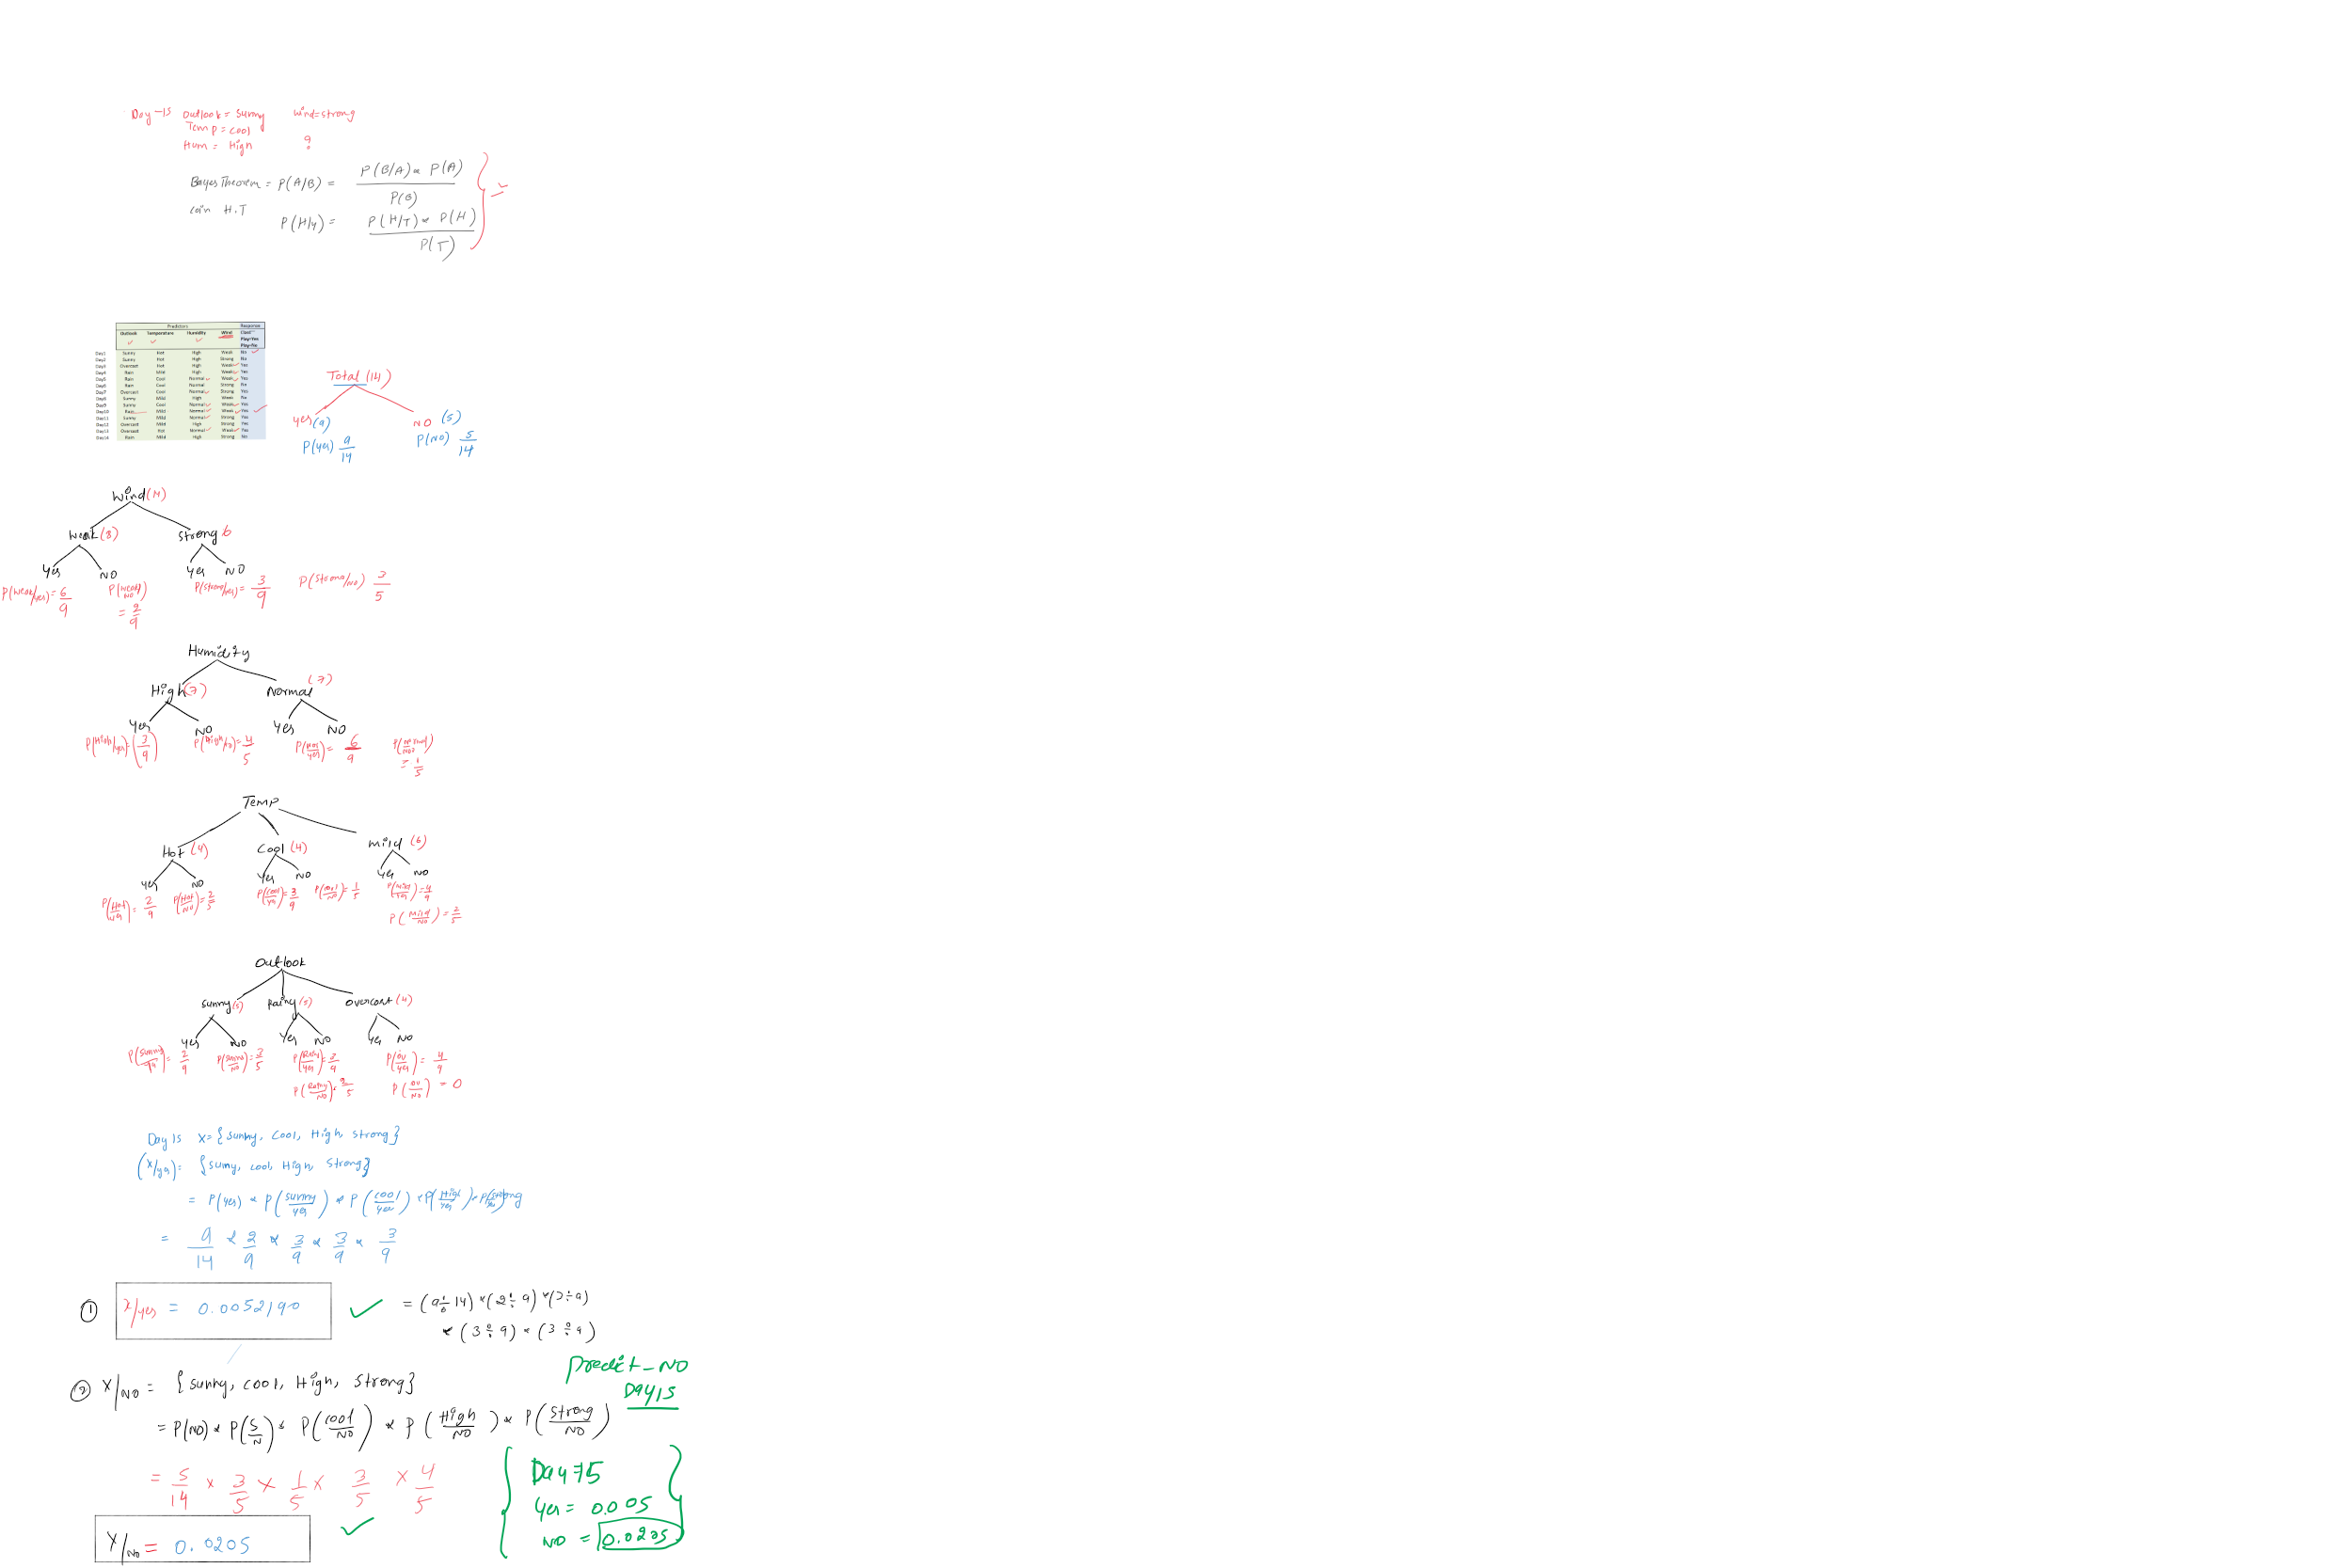 Day-15 Outlook = Sunny Wind=strong
Temp = cool
Hum = High ?
Bayes Theorem = P(A/B) = P(B/A) * P(A)
P(B)
coin H.T
P(H/y) = P(H/T) * P(H)
P(T)
Predictors Response
Outlook Temperature Humidity Wind Class
Play=Yes
Play=No
Day1 Sunny Hot High Weak No
Day2 Sunny Hot High Strong No
Day3 Overcast Hot High Weak Yes
Day4 Rain Mild High Weak Yes
Day5 Rain Cool Normal Weak Yes
Day6 Rain Cool Normal Strong No
Day7 Overcast Cool Normal Strong Yes
Day8 Sunny Mild High Weak No
Day9 Sunny Cool Normal Weak Yes
Day10 Rain Mild Normal Weak Yes
Day11 Sunny Mild Normal Strong Yes
Day12 Overcast Mild High Strong Yes
Day13 Overcast Hot Normal Weak Yes
Day14 Rain Mild High Strong No
Total (14)
Yes (9) NO (5)
P(yes) 9/14 P(NO) 5/14
Wind (14)
Weak (8) Strong 6
Yes NO Yes NO
P(weak/yes) = 6/9 P(weak/NO) = 2/9 P(strong/yes) = 3/9 P(strong/NO) 3/5
Humidity
High (7) Normal (7)
Yes NO Yes NO
P(High/yes) = (3/9) P(High/no) = 4/5 P(nor/yes) = 6/9 P(normal/no) = 1/5
Temp
Hot (4) Cool (4) Mild (6)
Yes NO Yes NO Yes NO
P(Hot/yes) = 2/9 P(Hot/NO) = 2/5 P(cool/yes) = 3/9 P(cool/NO) = 1/5 P(mild/yes) = 4/9
P(mild/NO) = 2/5
Outlook
Sunny (5) Rainy (5) Overcast (4)
Yes NO Yes NO Yes NO
P(sunny/yes) = 2/9 P(sunny/NO) = 3/5 P(Rainy/yes) = 3/9 P(ov/yes) = 4/9
P(Rainy/NO) = 2/5 P(ov/NO) = 0
Day 15 X = {Sunny, Cool, High, Strong}
(X/yes) = {Sunny, cool, High, Strong}
= P(yes) * P(sunny/yes) * P(cool/yes) * P(High/yes) * P(strong
= 9/14 * 2/9 * 3/9 * 3/9 * 3/9
① X/yes = 0.0052190 = (9÷14)*(2÷9)*(3÷9)
* (3÷9) * (3÷9)
Predict - NO
Day15
② X/NO = {Sunny, cool, High, Strong}
= P(NO) * P(S/N) * P(cool/NO) * P(High/NO) * P(Strong/NO)
= 5/14 x 3/5 x 1/5 x 3/5 x 4/5
X/No = 0.0205
Day 15
Yes = 0.005
NO = 0.0205